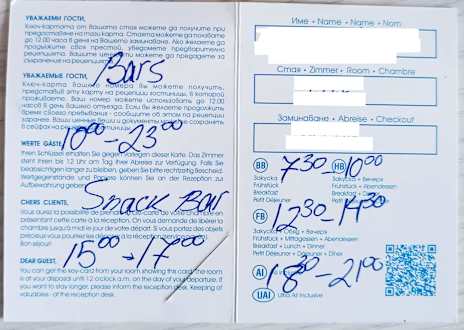 УВАЖАЕМИ ГОСТИ,
Ключ-картата от Вашата стая можете да получите при
представяне на тази карта. Стаята можете да ползвате
до 12.00 часа в деня на Вашето заминаване. Ако желаете да
продължите своя престой, уведомете предварително
рецепцията. Вашите ценности можете да предадете за
съхранение на рецепция
Bars
УВАЖАЕМЫЕ ГОСТИ,
Ключ-карта Вашего номера Вы можете получить,
предоставив эту карту на рецепции гостиницы, в которой
проживаете. Ваш номер можете использовать до 12.00
часов в день Вашего отъезда. Если Вы желаете продлить
время своего пребывания - сообщите об этом на рецепции
заранее. Ваши ценные вещи и документы можете сохранять
в сейфах на
10 00 - 23 00
WERTE GÄSTE,
Ihren Schlüssel erhalten Sie gegen Vorlegen dieser Karte. Das Zimmer
steht Ihnen bis 12 Uhr am Tag Ihrer Abreise zur Verfügung. Falls Sie
beabsichtigen länger zu bleiben, geben Sie bitte rechtzeitig Bescheid.
Wertgegenstände und Papiere können Sie an der Rezeption zur
Aufbewahrung geben
Snack Bar
CHERS CLIENTS,
Vous aurez la possibilité de prendre la clé-carte de votre chambre en
présentant cette carte à la réception. On vous demande de libérer la
chambre jusqu'à midi le jour de votre départ. Si vous portez des objets
précieux vous pouvez les déposer à la réception
Bon séjour!
15 00 - 17 00
DEAR GUEST,
You can get the key-card from your room showing this card. The room
is at your disposal until 12 o'clock a.m. on the day of your departure. If
you want to stay longer, please inform the reception desk. Keeping of
valuables - at the reception desk.
Име • Name • Name • Nom
Стая • Zimmer • Room • Chambre
Заминаване • Abreise • Checkout
BB 7 30 - HB 10 00
Закуска Закуска + Вечеря
Frühstück Frühstück + Abendessen
Breakfast Breakfast + Dinner
Petit Déjeuner Petit Déjeuner + Dîner
FB 12 30 - 14 30
Закуска + Обяд + Вечеря
Frühstück + Mittagessen + Abendessen
Breakfast + Lunch + Dinner
Petit Déjeuner + Déjeuner + Dîner
AI 18 30 - 21 00
All Inclusive
UAI Ultra All Inclusive